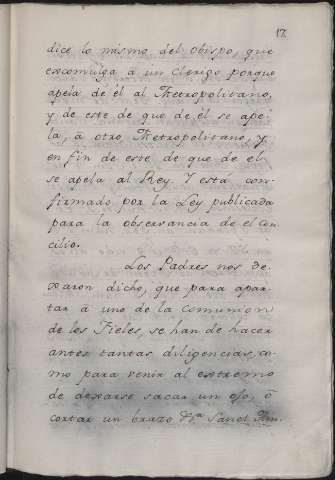 17
dice lo mismo del obispo, que
excomulga à un clerigo porque
apela de èl al Metropolitano,
y de este de que de èl se ape
la, à otro Metropolitano, y
en fin de este de que de el
se apela al Rey. Y està con-
firmado por la Ley publicada
para la observancia de el con
cilio.
Los Padres nos de-
xaron dicho, que para apar-
tar à uno de la comunion
de los Fieles, se han de hacer
antes tantas diligencias, co-
mo para venir al extremo
de dexarse sacar un ojo, ò
cortar un brazo Sanct